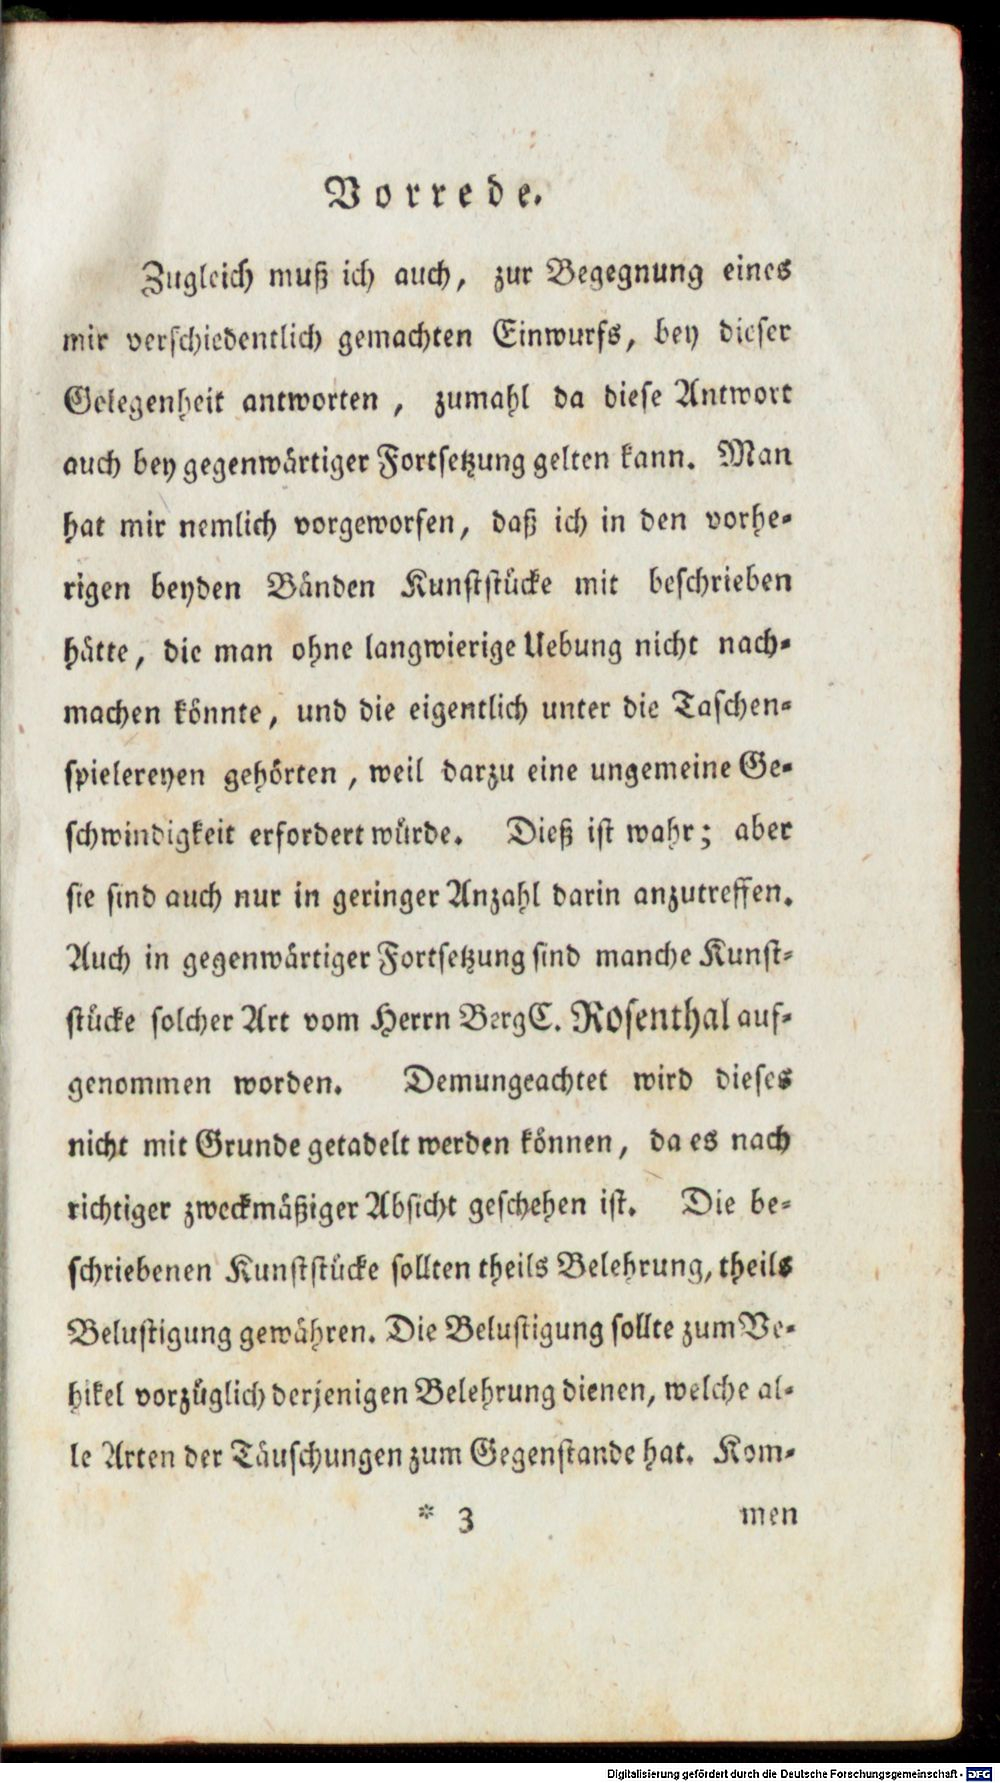 Vorrede.
Zugleich muß ich auch, zur Begegnung eines
mir verschiedentlich gemachten Einwurfs, bey dieser
Gelegenheit antworten, zumahl da diese Antwort
auch bey gegenwärtiger Fortsetzung gelten kann. Man
hat mir nemlich vorgeworfen, daß ich in den vorhe-
rigen beyden Bänden Kunststücke mit beschrieben
hätte, die man ohne langwierige Uebung nicht nach-
machen könnte, und die eigentlich unter die Taschen-
spielereyen gehörten, weil darzu eine ungemeine Ge-
schwindigkeit erfordert würde. Dieß ist wahr; aber
sie sind auch nur in geringer Anzahl darin anzutreffen.
Auch in gegenwärtiger Fortsetzung sind manche Kunst-
stücke solcher Art vom Herrn BergC. Rosenthal auf-
genommen worden. Demungeachtet wird dieses
nicht mit Grunde getadelt werden können, da es nach
richtiger zweckmäßiger Absicht geschehen ist. Die be-
schriebenen Kunststücke sollten theils Belehrung, theils
Belustigung gewähren. Die Belustigung sollte zum Ve-
hikel vorzüglich derjenigen Belehrung dienen, welche al-
le Arten der Täuschungen zum Gegenstande hat. Kom-
* 3 men
Digitalisierung gefördert durch die Deutsche Forschungsgemeinschaft - DFG